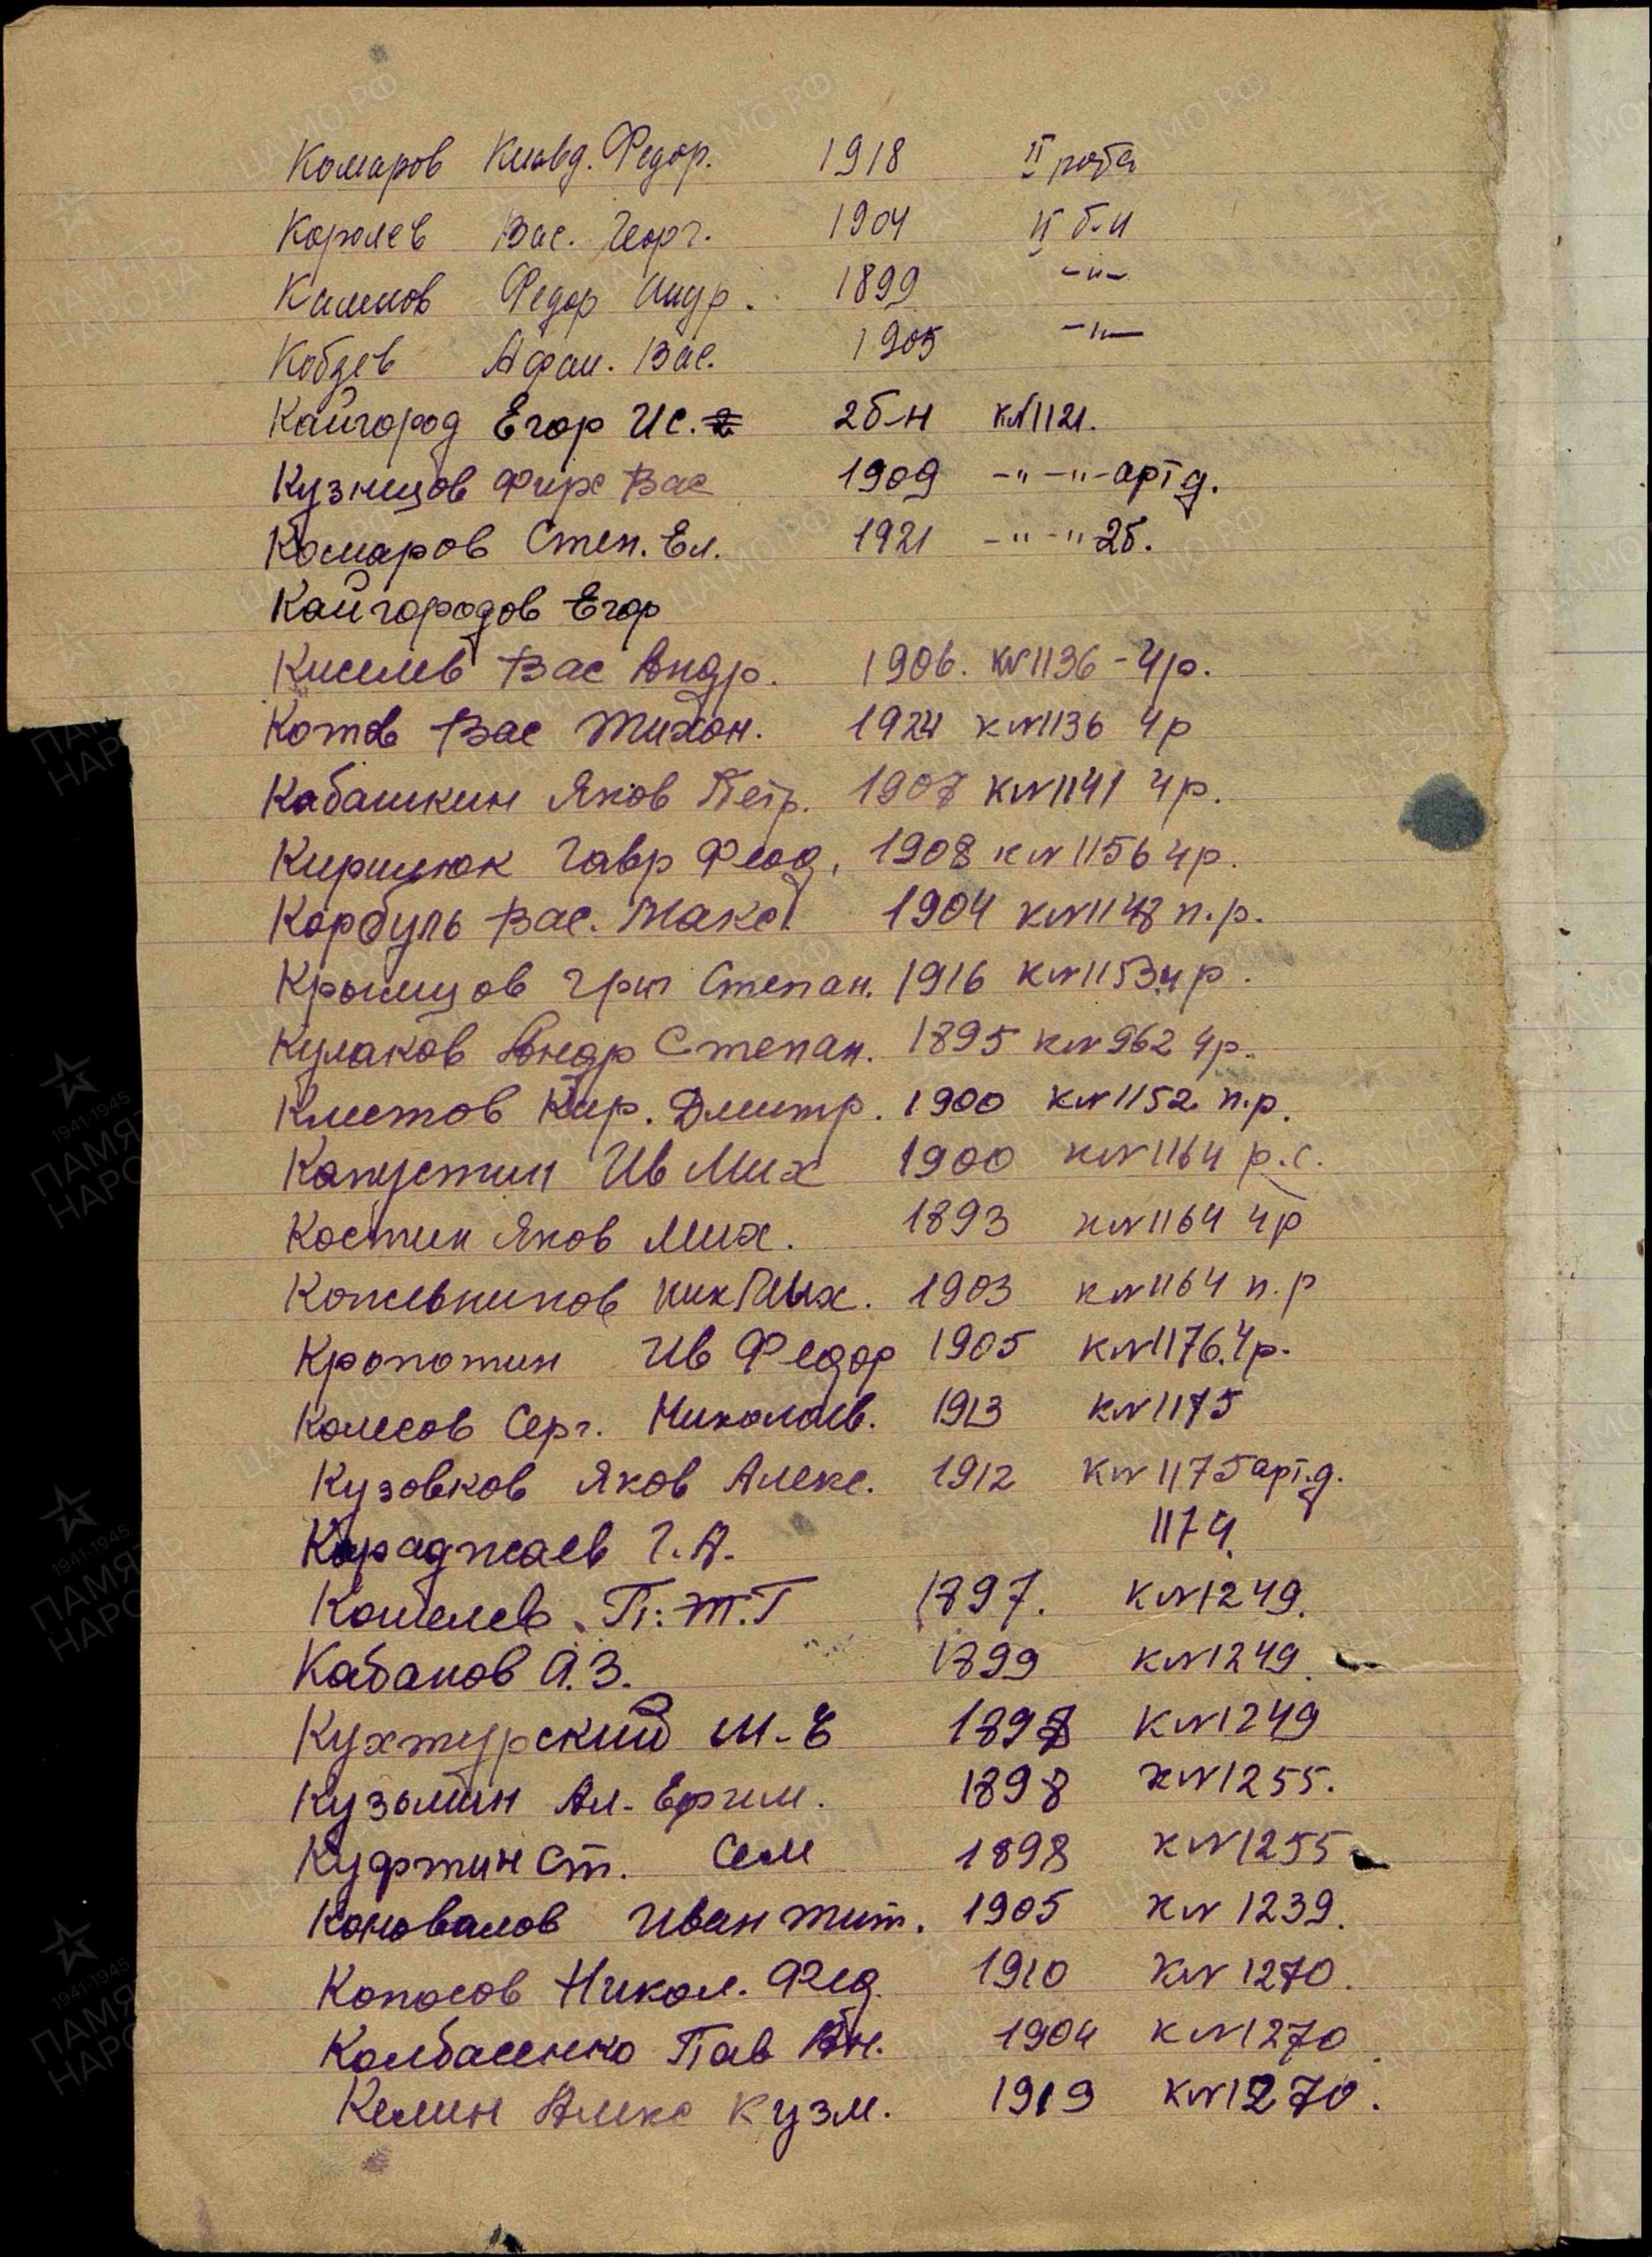 Комаров Кинвд. Федор. 1918 II рота
Королев Вас. Георг. 1904 II б-н
Климов Федор Андр. 1899 -"-
Кобзев Афан. Вас. 1905 -"-
Кайгород Егор Ис. 2б-н к№1121.
Кузнецов Фирс Вас 1909 -"-"- артд.
Комаров Степ. Ел. 1921 -"-" 2б.
Кайгородов Егор
Киселев Вас Андр. 1906. к№1136 - 4р.
Котов Вас Тихон. 1924 к№1136 4р
Кабашкин Яков Петр. 1907 к№1141 4р.
Кирилюк Гавр Феод. 1908 к№1156 4р.
Корбуль Вас. Макс. 1904 к№1148 п.р.
Крымцов Григ Степан. 1916 к№1153 4р.
Кулаков Андр Степан. 1895 к№962 4р.
Клистов Кир. Дмитр. 1900 к№1152 п.р.
Капустин Ив Мих 1900 к№1164 р.с.
Костин Яков Мих. 1893 к№1164 4р
Кожевников Ник Мих. 1903 к№1164 п.р
Кропотин Ив Федор 1905 к№1176. 4р.
Колесов Серг. Николаев. 1913 к№1175
Кузовков Яков Алекс. 1912 к№1175 арт.д.
Караджаев Г.А. 1174.
Кошелев П. Т. Г 1897. к№1249.
Кабанов А.З. 1899 к№1249.
Кухтурский И-Е 1898 к№1249
Кузьмин Ал. Ефим. 1898 к№1255.
Куфтин Ст. Сем 1898 к№1255
Коновалов Иван Тит. 1905 к№ 1239.
Копосов Никол. Фед. 1910 к№ 1270.
Колбасенко Пав Ан. 1904 к№1270
Келин Алекс Кузм. 1919 к№1270.
ЦАМО.РФ
1941-1945
ПАМЯТЬ
НАРОДА